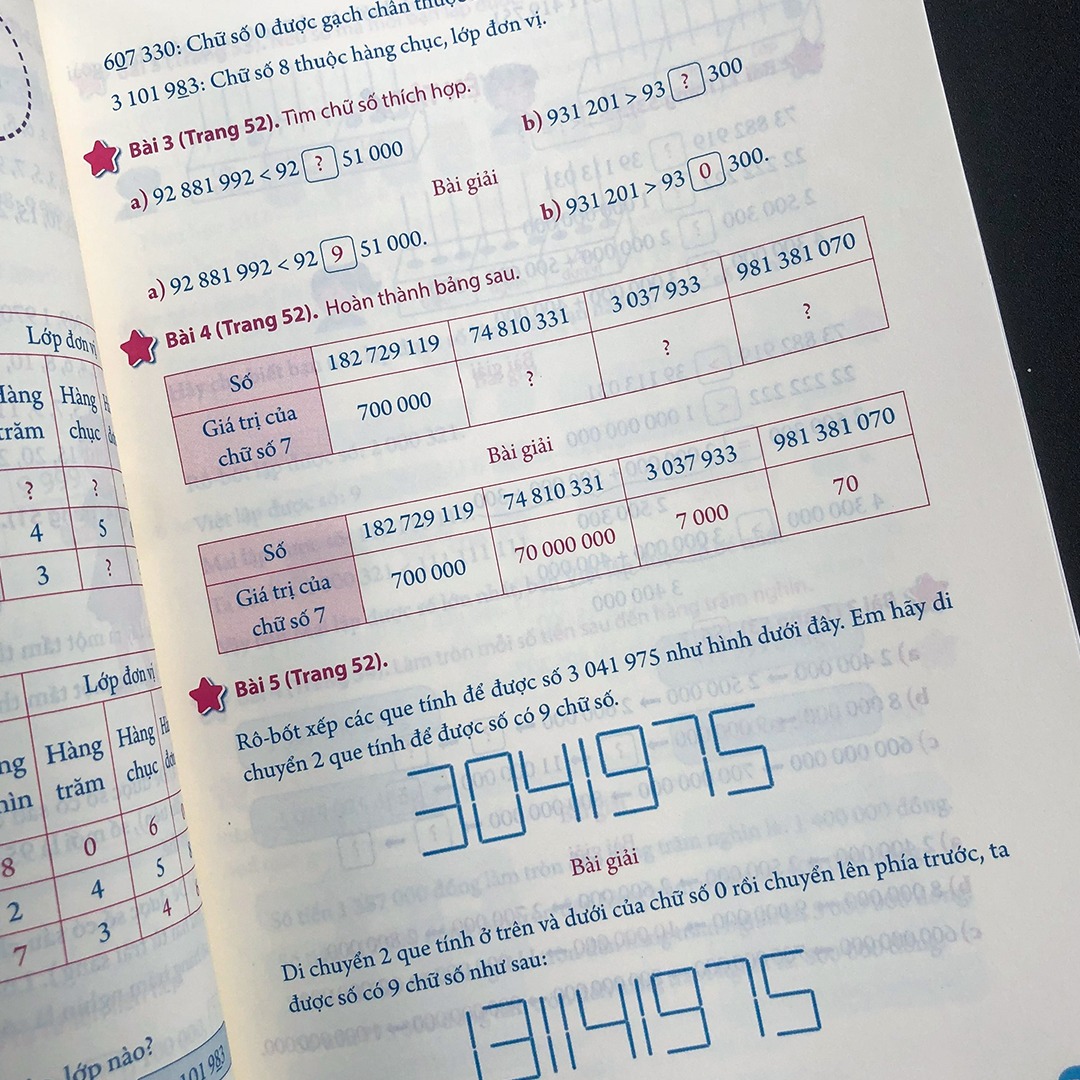 607 330: Chữ số 0 được gạch chân
3 101 983: Chữ số 8 thuộc hàng chục, lớp đơn vị.
Bài 3 (Trang 52). Tìm chữ số thích hợp.
a) 92 881 992 < 92 ? 51 000
b) 931 201 > 93 ? 300
Bài giải
a) 92 881 992 < 92 9 51 000.
b) 931 201 > 93 0 300.
Bài 4 (Trang 52). Hoàn thành bảng sau.
Số 182 729 119 74 810 331 3 037 933 981 381 070
Giá trị của chữ số 7 700 000 ? ? ?
Bài giải
Số 182 729 119 74 810 331 3 037 933 981 381 070
Giá trị của chữ số 7 700 000 70 000 000 7 000 70
Bài 5 (Trang 52).
Rô-bốt xếp các que tính để được số 3 041 975 như hình dưới đây. Em hãy di
chuyển 2 que tính để được số có 9 chữ số.
3041975
Bài giải
Di chuyển 2 que tính ở trên và dưới của chữ số 0 rồi chuyển lên phía trước, ta
được số có 9 chữ số như sau:
131141975
Lớp đơn vị
Hàng
trăm chục
? ?
4 5
3 ?
Lớp đơn vị
Hàng Hàng
trăm chục
8 0 6
2 4 5
7 3 4
lớp nào?
101 983